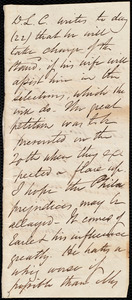 D. L. C. writes to day
(22) that he will
take charge of the
Stand, if his wife will
assist him in the
selections, which she
will do. The great
petition was to be
presented on the
20th when they ex-
pected a flare up
I hope the Phila
prejudices may be
allayed. It comes of
and his influence
greatly. He hates a
whig worse if
possible than Abby